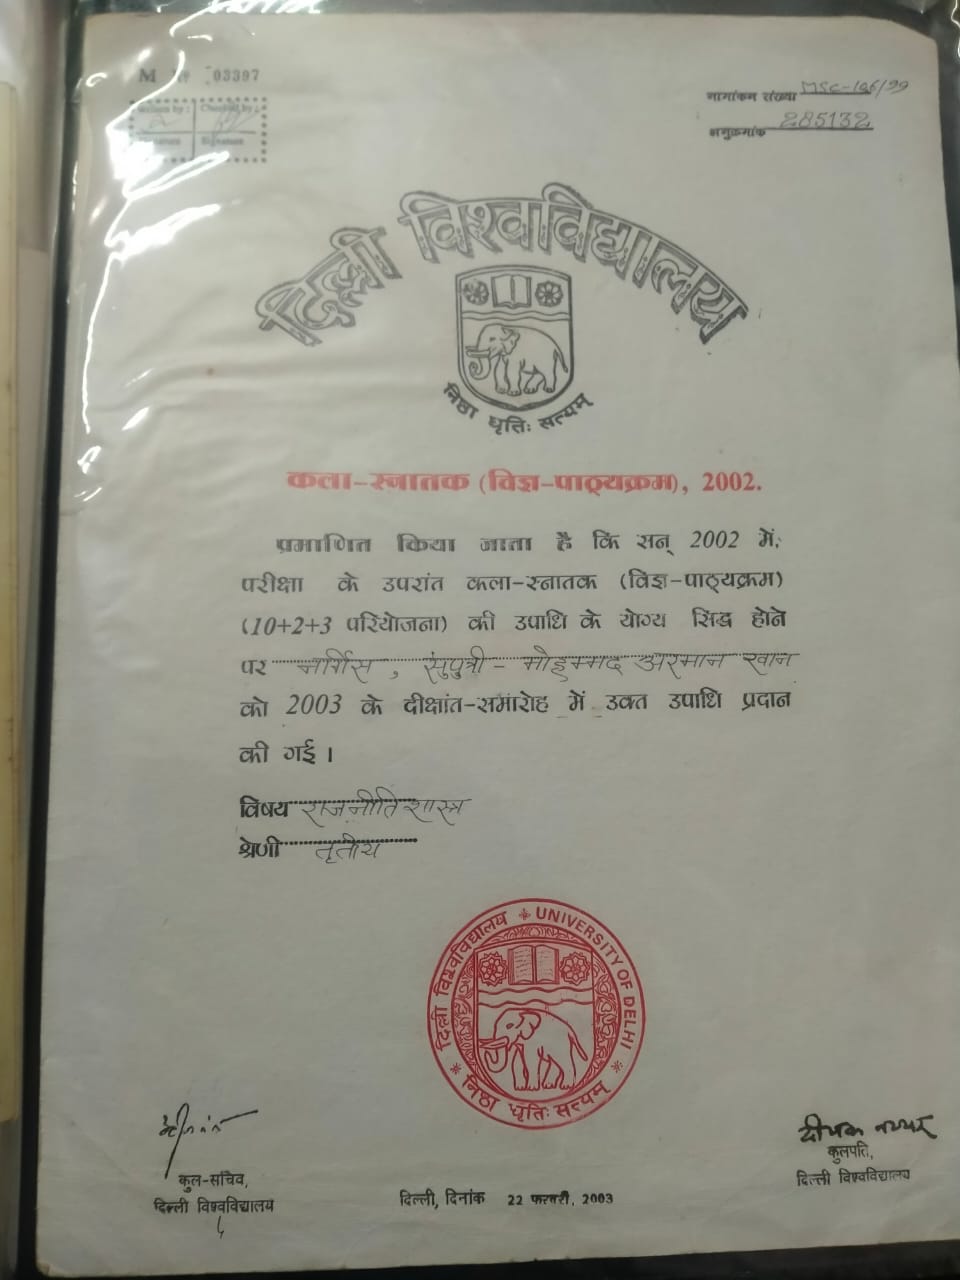 M № 03397
Written by :
Checked by :
Signature
Signature
नामांकन संख्या MSC-196/99
अनुक्रमांक 285132
दिल्ली विश्वविद्यालय
निष्ठा धृतिः सत्यम्
कला-स्नातक (विज्ञ-पाठ्यक्रम), 2002.
प्रमाणित किया जाता है कि सन् 2002 में,
परीक्षा के उपरांत कला-स्नातक (विज्ञ-पाठ्यक्रम)
(10+2+3 परियोजना) की उपाधि के योग्य सिद्ध होने
पर नर्गिस, सुपुत्री - मोहम्मद अरमान खान
को 2003 के दीक्षांत-समारोह में उक्त उपाधि प्रदान
की गई।
विषय राजनीति शास्त्र
श्रेणी तृतीय
दिल्ली विश्वविद्यालय UNIVERSITY OF DELHI
निष्ठा धृतिः सत्यम्
कुल-सचिव,
दिल्ली विश्वविद्यालय
दिल्ली, दिनांक 22 फरवरी, 2003
कुलपति,
दिल्ली विश्वविद्यालय